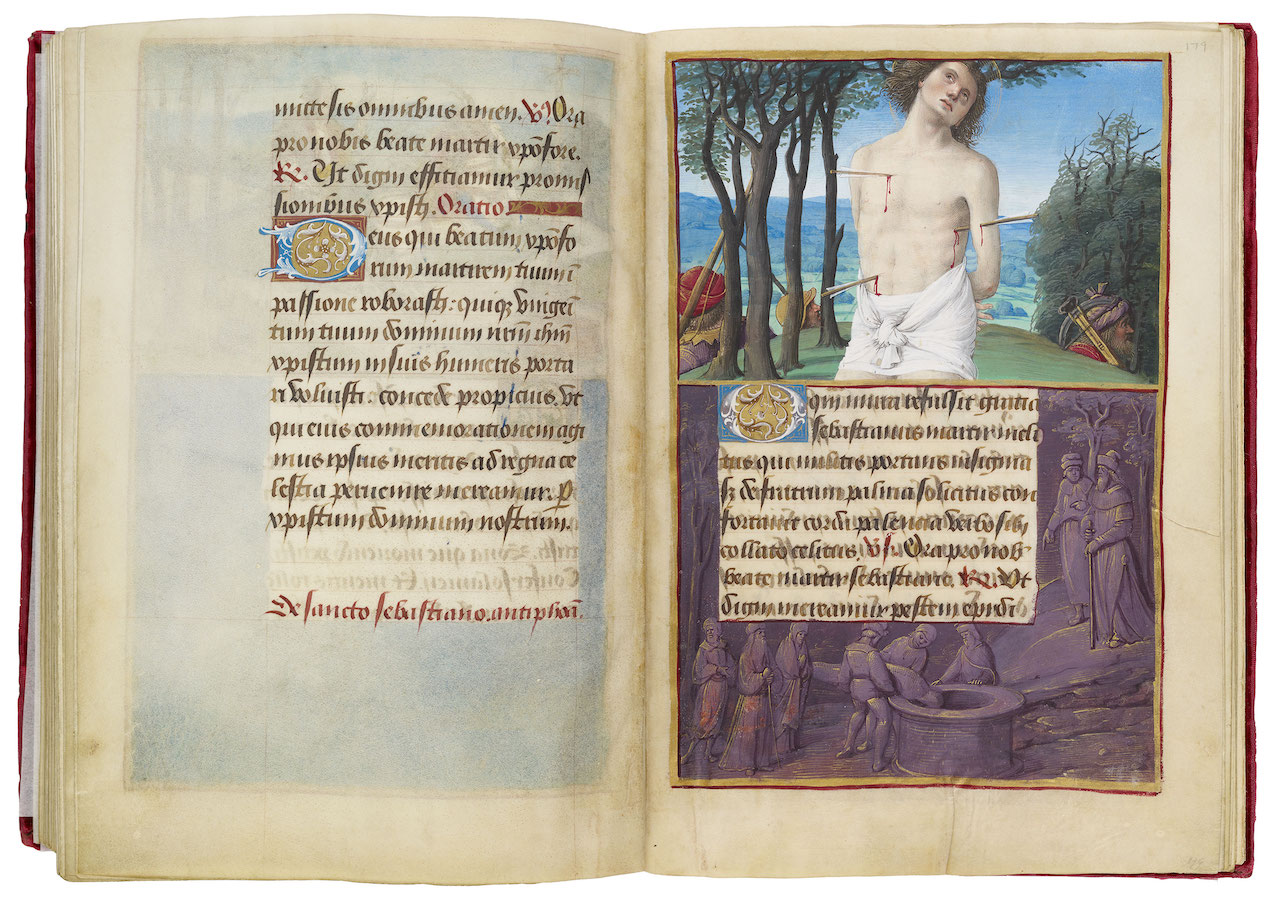 mitte sis omnibus amen. V. Ora
pro nobis beate martir xpofore.
R. Ut digni efficiamur promis
sionibus xpisti. Oratio
Deus qui beatum xpofo
rum martirem tuum i
passione roborasti: quiqz unigeni
tum tuum dominum nrm ihm
xpistum in suis humeris porta
ri voluisti: concede propicius, ut
qui eius commemorationem agi
mus ipsius meritis ad regna ce
lestia pervenire mereamur. p
xpistum dominum nostrum.
De sancto sebastiano. antiphona.
179
O quam mira refulsit gratia
sebastianus martir incli
tus qui militis portans insignia
sz de fratrum palma solicitus con
fortavit corda palencia verbo sibi
collato celitus. V. Ora pro nob
beate martir sebastiane. R. Ut
digni mereamur pestem epydi